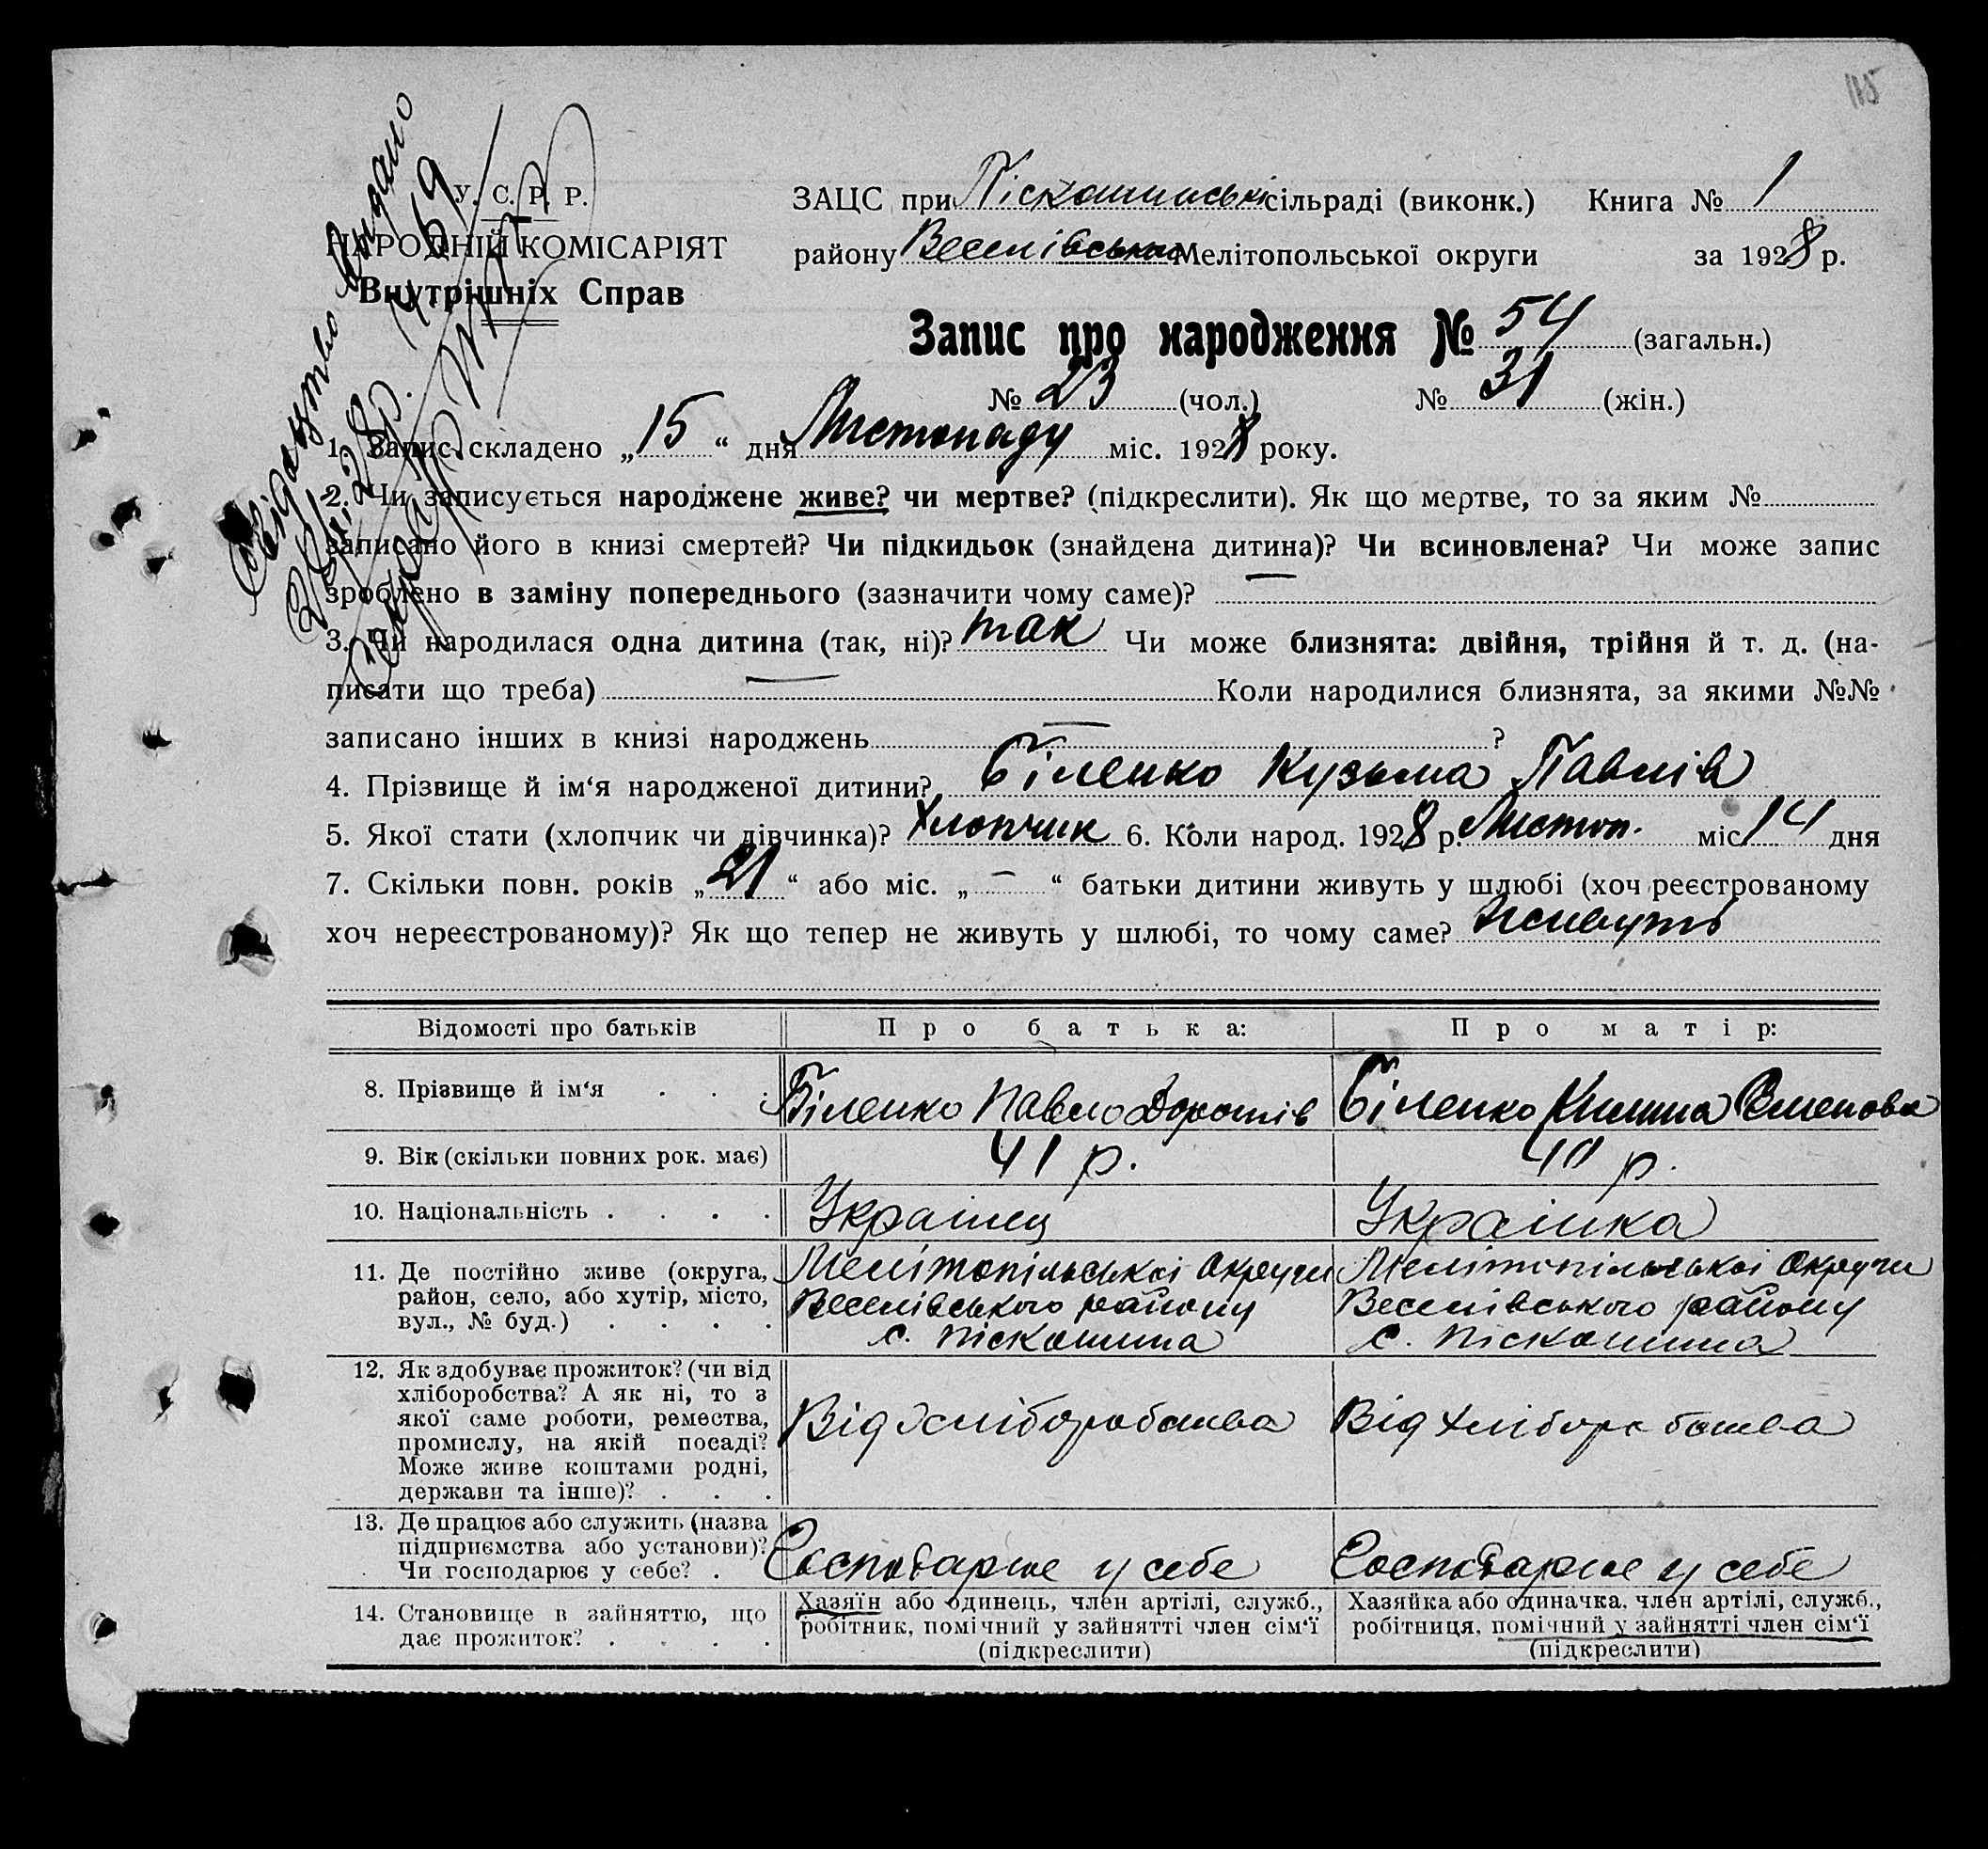 115
Свідоцтво видано
28/XI 28 р. № 69
У. С. Р. Р.
НАРОДНІЙ КОМІСАРІЯТ
Внутрішніх Справ
ЗАЦС при Піскошинській сільраді (виконк.) Книга № 1
району Веселівського Мелітопольської округи за 1928 р.
Запис про народження № 54 (загальн.)
№ 23 (чол.) № 31 (жін.)
1. Запис складено „15“ дня Листопаду міс. 1928 року.
2. Чи записується народжене живе? чи мертве? (підкреслити). Як що мертве, то за яким №
записано його в книзі смертей? Чи підкидьок (знайдена дитина)? Чи всиновлена? Чи може запис
зроблено в заміну попереднього (зазначити чому саме)? —
3. Чи народилася одна дитина (так, ні)? так Чи може близнята: двійня, трійня й т. д. (на-
писати що треба) — Коли народилися близнята, за якими №№
записано інших в книзі народжень — ?
4. Прізвище й ім‘я народженої дитини? Біленко Кузьма Павлів
5. Якої стати (хлопчик чи дівчинка)? Хлопчик 6. Коли народ. 1928 р. Листоп. міс 14 дня
7. Скільки повн. років „21“ або міс. „—“ батьки дитини живуть у шлюбі (хоч реєстрованому
хоч нереєстрованому)? Як що тепер не живуть у шлюбі, то чому саме? Живуть
Відомості про батьків Про батька: Про матір:
8. Прізвище й ім‘я . . . Біленко Павло Біленко Семенова
9. Вік (скільки повних рок. має) 41 р. 40 р.
10. Національність . . . . Українец Українка
11. Де постійно живе (округа, район, село, або хутір, місто, вул., № буд.) . . . .
Мелітопільської Округи
Веселівського району
с. Піскошина
Мелітопільської Округи
Веселівського району
с. Піскошина
12. Як здобуває прожиток? (чи від
хліборобства? А як ні, то з
якої саме роботи, ремества,
промислу, на якій посаді?
Може живе коштами родні,
держави та інше)? . . .
Від хліборобства
Від хліборобства
13. Де працює або служить (назва
підприємства або установи)?
Чи господарює у себе? .
Господарює у себе
Господарює у себе
14. Становище в зайняттю, що
дає прожиток? . . . .
Хазяїн або одинець, член артілі, служб.,
робітник, помічний у зайнятті член сім‘ї
(підкреслити)
Хазяйка або одиначка, член артілі, служб.,
робітниця, помічний у зайнятті член сім‘ї
(підкреслити)